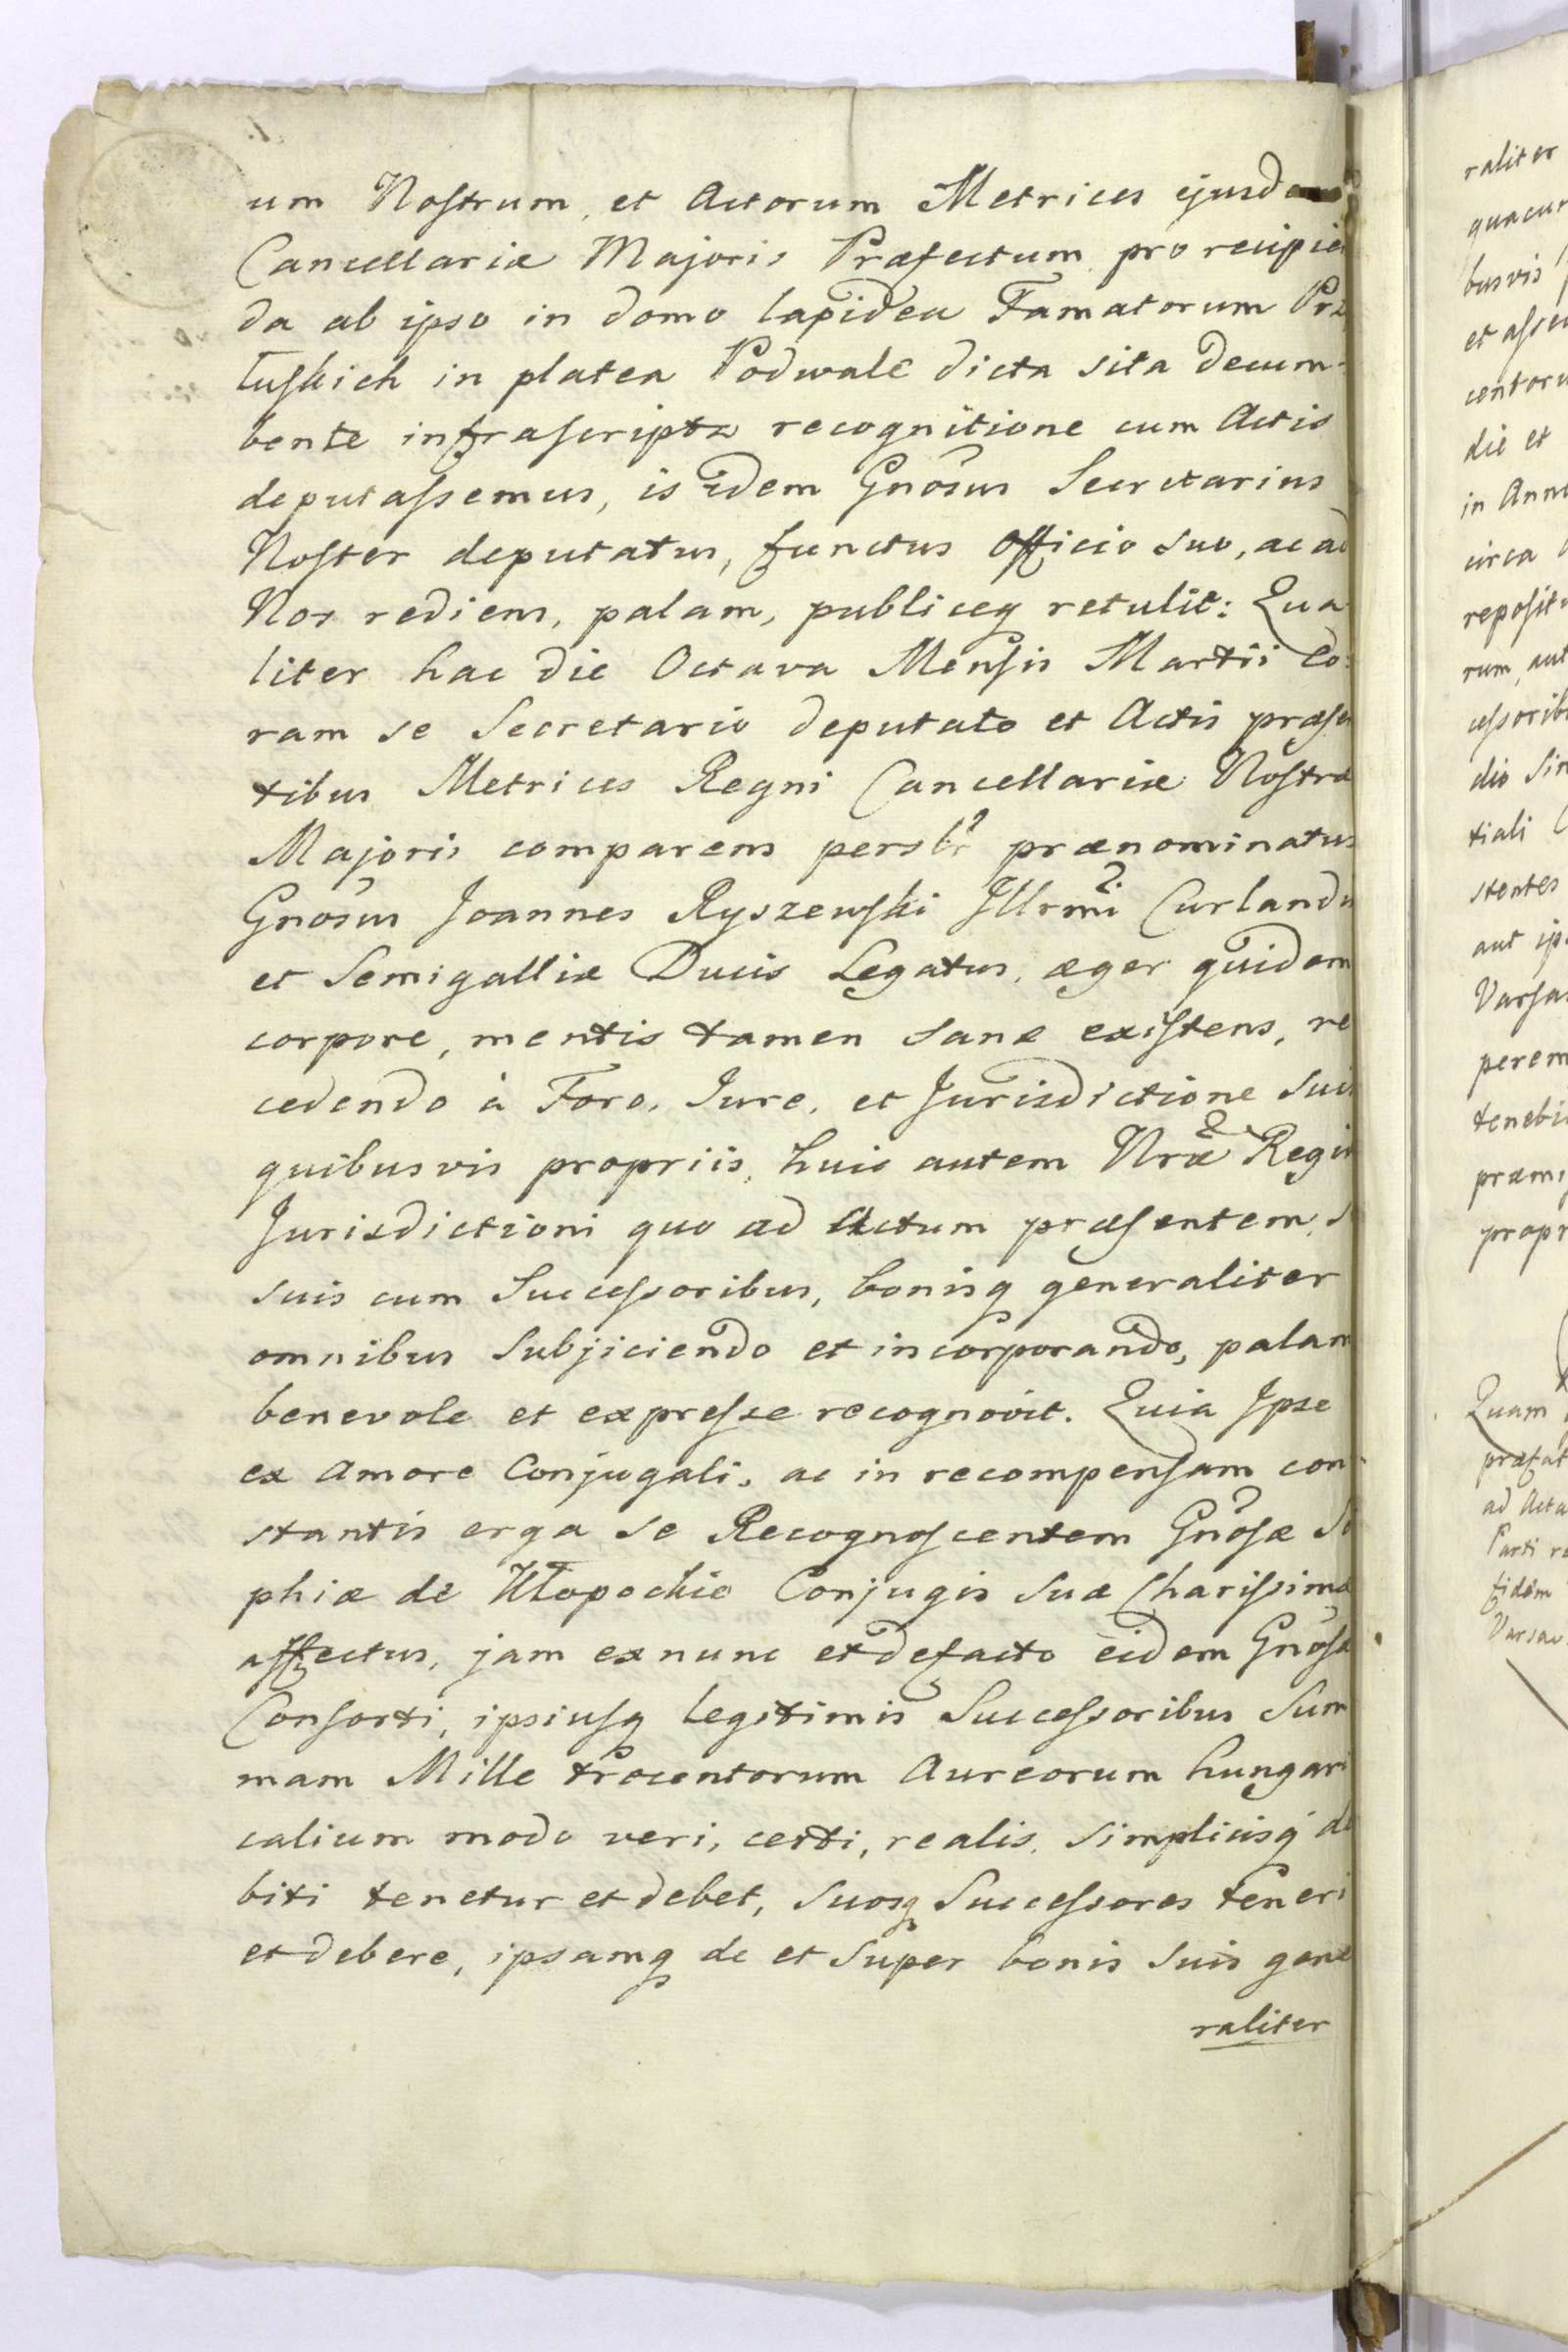 um Nostrum, et Actorum Metrices ejusd
Cancellariæ Majoris Præfectum pro recipie
da ab ipso in domo lapidea Famatorum Prz
łuskich in platea Podwale dicta sita decum-
bente infrascripta recognitione cum Actis
deputassemus, is idem Gnosus Secretarius
Noster deputatus, functus officio suo, ac ad
Nos rediens, palam, publiceq retulit: Qua
liter hac die Octava Mensis Martii Co:
ram se Secretario deputato et Actis præse
tibus Metrices Regni Cancellariæ Nostræ
Majoris comparens persbr prænominatus
Gnosus Joannes Ryszewski Illrmi Curlandi
et Semigalliæ Ducis Legatus, æger quidem
corpore, mentis tamen sanæ existens, re
cedendo à Foro, Jure, et Jurisdictione suis
quibusvis propriis, huic autem Nræ Regiæ
Jurisdictioni quo ad Actum præsentem, s
suis cum Successoribus, bonisq generaliter
omnibus subjiciendo et incorporando, palam
benevole et expresse recognovit. Quia Ipse
ex Amore Conjugali, ac in recompensam con-
stantis erga se Recognoscentem Gnosæ So
phiæ de Kłopockie Conjugis suæ Charissimæ
affectus, jam exnunc et defacto eidem Gnosæ
Consorti, ipsiusq legitimis Successoribus Sum
mam Mille trecentorum Aureorum hungari
calium modo veri, certi, realis, simplicisq de
biti tenetur et debet, suosq Successores teneri
et debere, ipsamq de et super bonis suis gene
raliter
raliter
quacun
busvis
et asse
centoru
die et
in Anno
circa
reposit
rum, aut
cessorib
dio Sin
tiali
stentes
aut ip
Varsa
perem
tenebi
præmi
propr
Quam
præfat
ad Acta
Parti re
fidem
Varsav